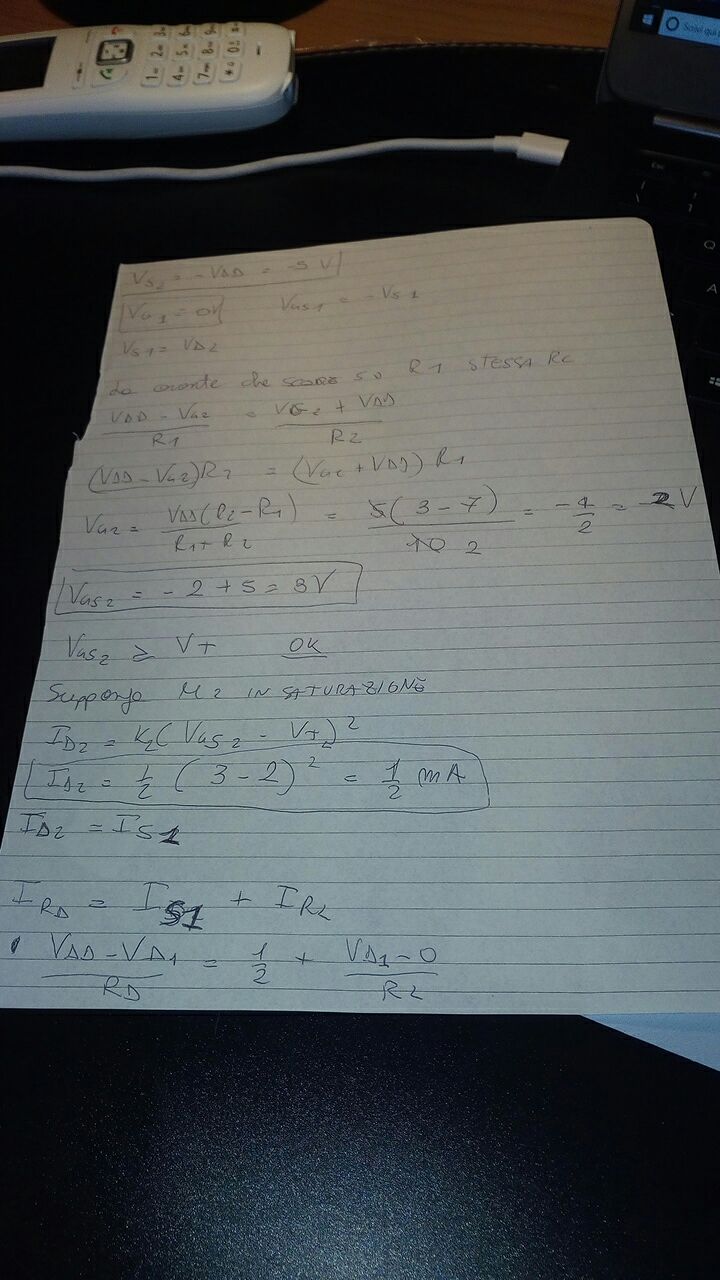 1 2 3
4 5 6
7 8 9
* 0 #
Scrivi qui
Q
A
V_S2 = -VDD = -5 V
V_G1 = 0V V_GS1 = -V_S1
V_S1 = V_D2
La corrente che scorre su R1 STESSA R2
(VDD - V_G2)/R1 = (V_G2 + VDD)/R2
(VDD - V_G2)R2 = (V_G2 + VDD) R1
V_G2 = VDD(R2 - R1)/(R1 + R2) = 5(3 - 7)/10 2 = -4/2 = -2V
V_GS2 = -2 + 5 = 3V
V_GS2 ≥ V_T OK
Suppongo M2 IN SATURAZIONE
I_D2 = K_2(V_GS2 - V_T)^2
I_D2 = 1/2 (3 - 2)^2 = 1/2 mA
I_D2 = I_S1
I_RD = I_S1 + I_RL
(VDD - V_D1)/RD = 1/2 + (V_D1 - 0)/RL